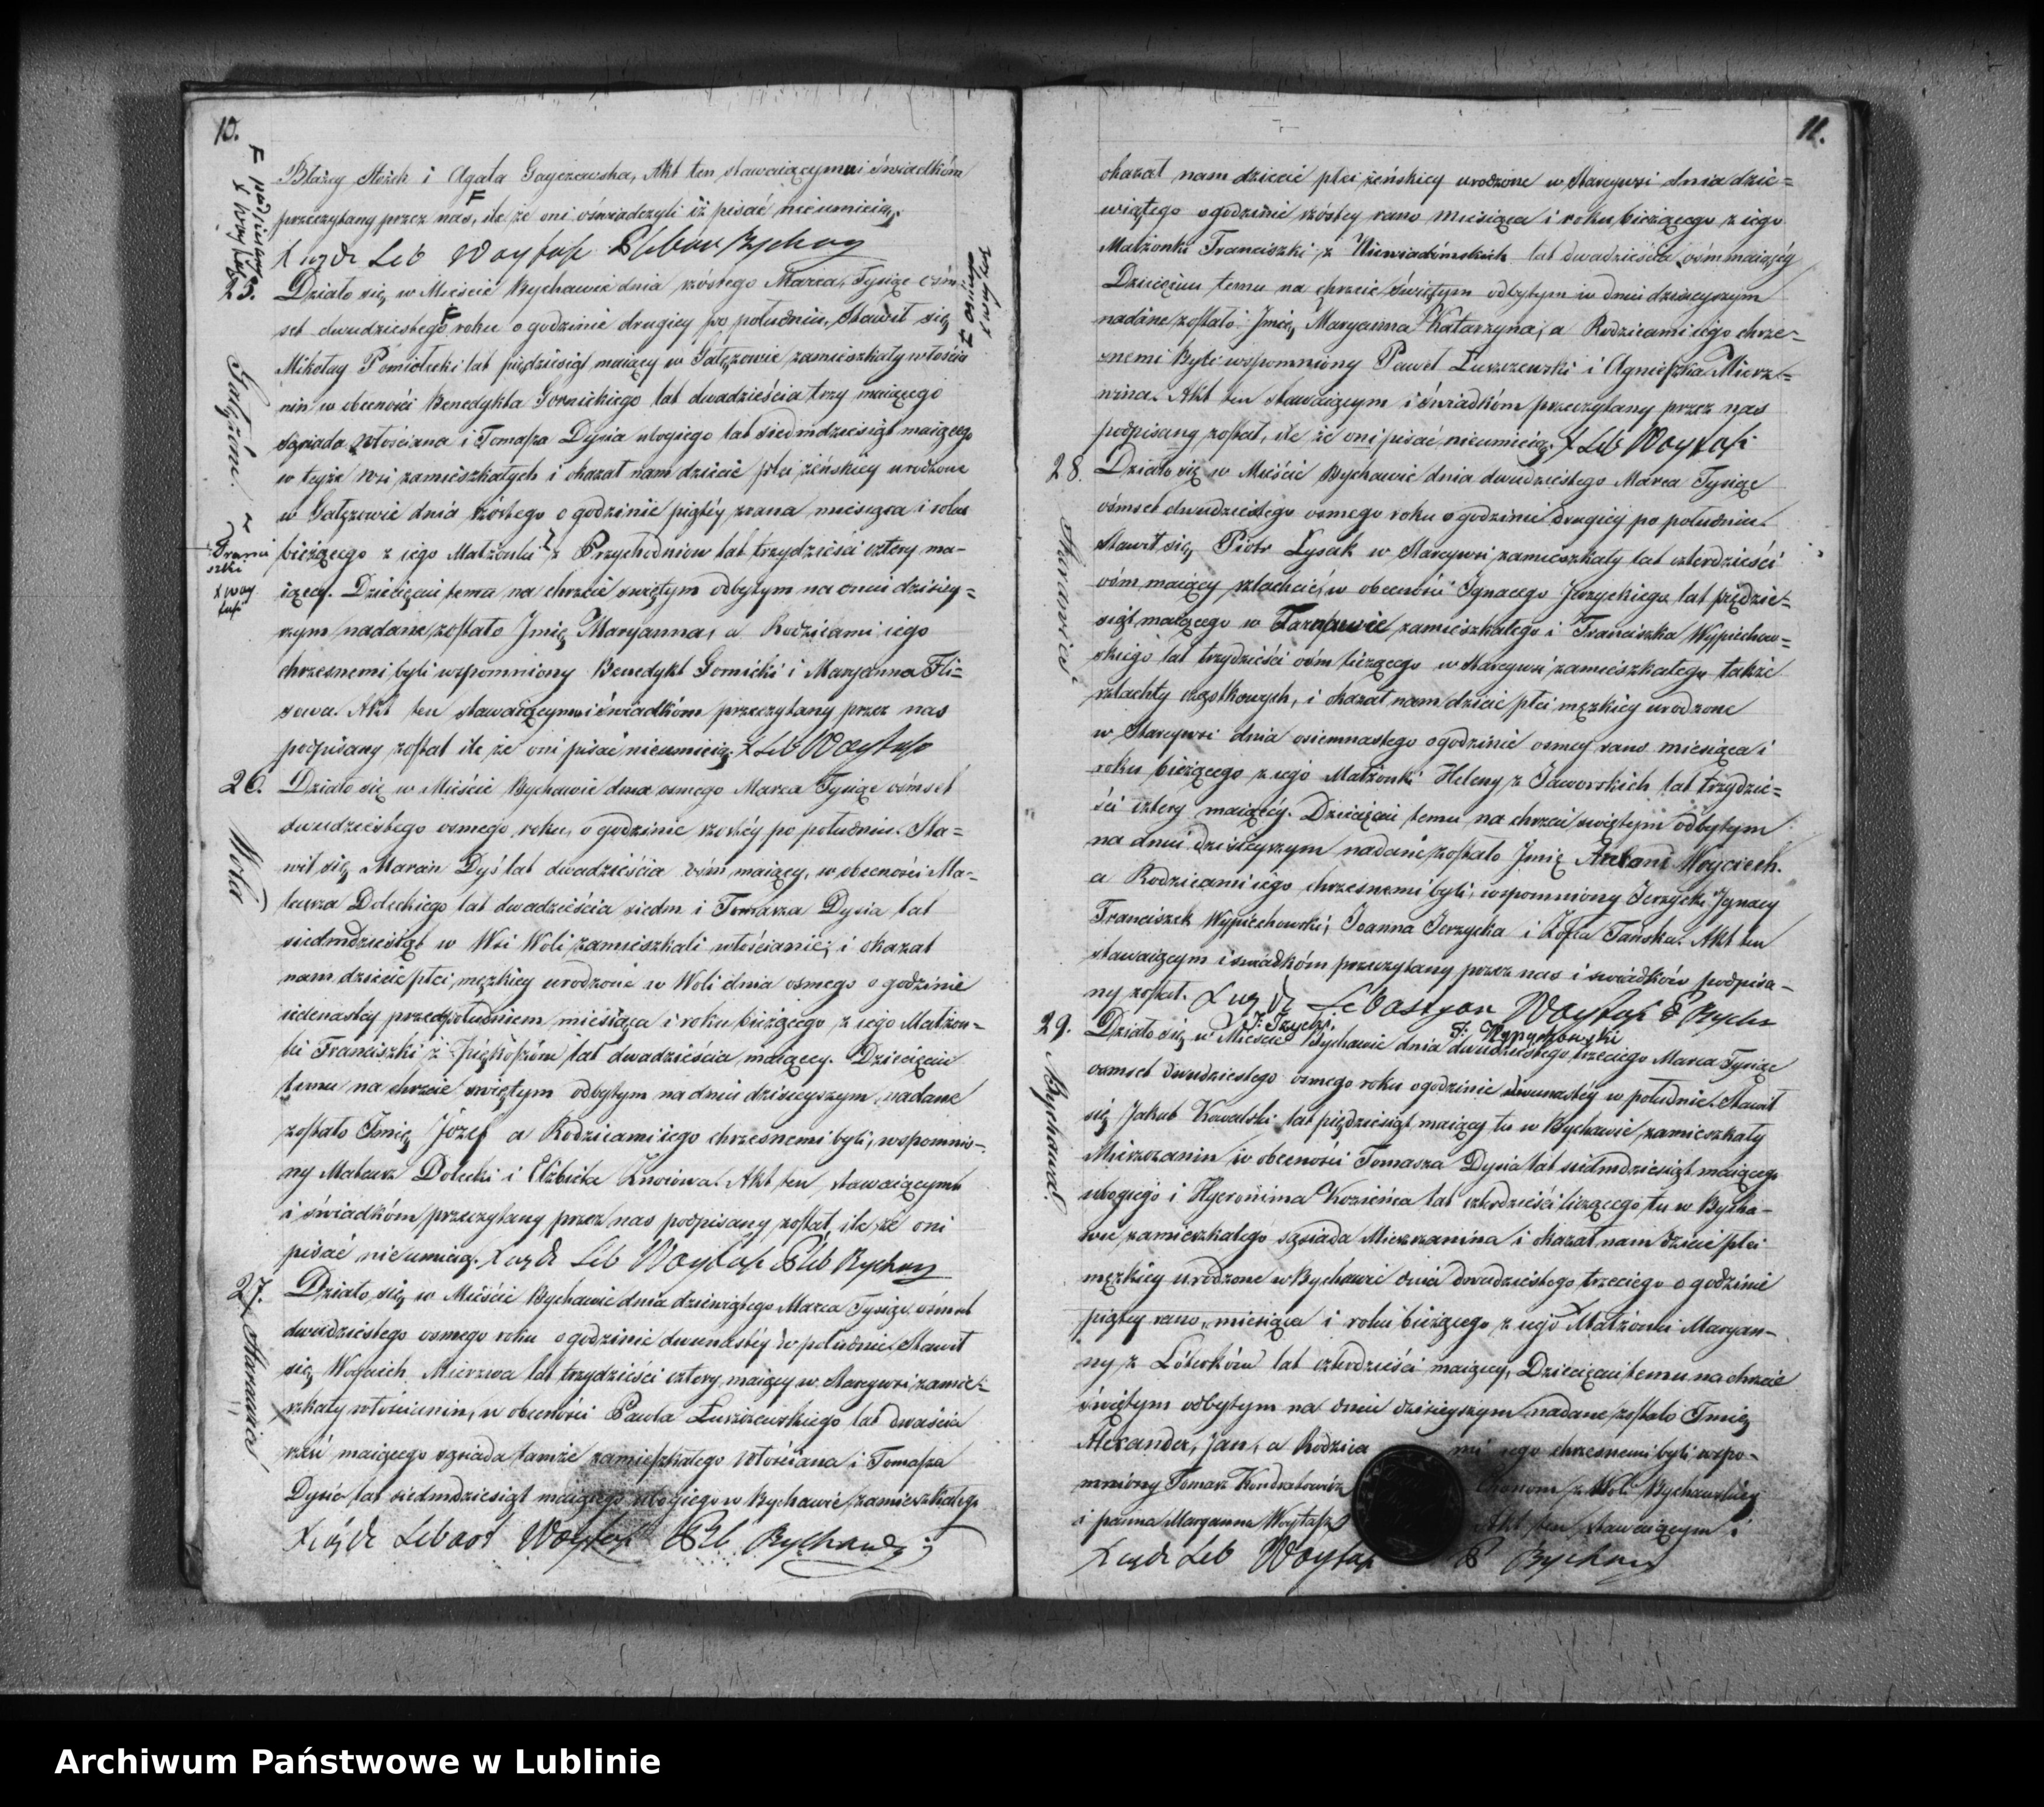 10.
Błażey Stożek i Agata Gayczewska, Akt ten stawaiącymu i świadkóm
przeczytany przez nas, ile że oni oświadczyli iż pisać nieumieią.
X iądz Seb Woytaś Pleban Bychaw
25.
Działo się w Mieście Bychawie dnia szóstego Marca, Tysiąc ośm
set dwudziestego roku o godzinie drugiey po południu, Stawił się
Mikołay Pomiotecki lat pięćdziesiąt maiący w Gałęzowie zamieszkały włościa
nin w obecności Benedykta Gornickiego lat dwadzieścia trzy maiącego
sąsiada włościana i Tomasza Dysia ubogiego lat siedmdziesiąt maiącego
w teyże wsi zamieszkałych i okazał nam dziecie płci żeńskiey urodzone
w Gałęzowie dnia szóstego o godzinie piątéy zrana miesiąca i roku
bieżącego z iego Małżonki z Przychodniów lat trzydzieści cztery ma-
iącey. Dziecięciu temu na chrzcie świętym odbytym na dniu dzisiey=
szym nadane zostało Jmię Maryanna, a Rodzicami iego
chrzesnemi byli wspomniony Benedykt Gornicki i Maryanna Fli=
sowa. Akt ten stawaiącymu i świadkóm przeczytany przez nas
podpisany został ile że oni pisać nieumieią. X Seb Woytaś
Gałęzów.
Franci
szki
X Woy
taś
26.
Wola
Działo się w Mieście Bychawie dnia osmego Marca Tysiąc ośmset
dwudziestego osmego roku, o godzinie szostéy po południu. Sta=
wił się Marcin Dyś lat dwadzieścia ośm maiący, w obecności Ma-
teusza Doleckiego lat dwadzieścia siedm i Tomasza Dysia lat
siedmdziesiąt w Wsi Woli zamieszkali włościanie; i okazał
nam dziecie płci męzkiey urodzone w Woli dnia osmego o godzinie
iedenastey przedpołudniem miesiąca i roku bieżącego z iego Małżon-
ki Franciszki z lat dwadzieścia maiącey. Dziecięciu
temu na chrzcie świętym odbytym na dniu dzisieyszym nadane
zostało Jmię Józef a Rodzicami iego chrzesnemi byli, wspomnio-
ny Mateusz Dolecki i Elżbieta Znoiowa. Akt ten stawaiącymu
i świadkóm przeczytany przez nas podpisany został, ile że oni
pisać nieumieią. X iądz Seb Woytaś Pleb Bychaw
27.
Starawieś
Działo się w Mieście Bychawie dnia dziewiątego Marca Tysiąc ośmset
dwudziestego osmego roku o godzinie dwunastéy w południe. Stawił
się Woyciech Mierzwa lat trzydzieści cztery maiący w Stareywsi zamie=
szkały włościanin, w obecności Pawła Łuszczewskiego lat dwaścia
maiącego sąsiada tamże zamieszkałego włościana i Tomasza
Dysia lat siedmdziesiąt maiącego ubogiego w Bychawie zamieszkałego
X iądz Sebast Woytaś Pleb Bychawski
11.
okazał nam dziecie płci żeńskiey urodzone w Stareywsi dnia dzie=
wiątego o godzinie szóstey rano miesiąca i roku bieżącego z iego
Małżonki Franciszki z Niewiadomskich lat dwadzieścia ośm maiącéy
Dziecięciu temu na chrzcie świętym odbytym w dniu dzisieyszym
nadane zostało Jmię, Maryanna Katarzyna, a Rodzicami iego chrze=
snemi byli wspomniony Paweł Łuszczewski i Agnieszka Mierz=
wina. Akt ten stawaiącym i świadkóm przeczytany przez nas
podpisany został, ile że oni pisać nieumieią. X Seb Woytaś
28.
Starawieś
Działo się w Mieście Bychawie dnia dwudziestego Marca Tysiąc
ośmset dwudziestego osmego roku o godzinie drugiey po południu.
Stawił się Piotr Łysak w Stareywsi zamieszkały lat czterdzieści
ośm maiący, szlachcic, w obecności Ignacego Jerzyckiego lat pięćdzie=
siąt maiącego w Tarnawie zamieszkałego i Franciszka Wypiechow=
skiego lat trzydzieści ośm liczącego w Stareywsi zamieszkałego także
szlachty cząstkowych, i okazał nam dziecie płci męzkiey urodzone
w Stareywsi dnia osiemnastego o godzinie osmey rano miesiąca i
roku bieżącego z iego Małżonki Heleny z Jaworskich lat trzydzie=
ści cztery maiącéy. Dziecięciu temu na chrzcie świętym odbytym
na dniu dzisieyszym nadane zostało Jmię Antoni Woyciech.
a Rodzicami iego chrzesnemi byli, wspomniony Jerzycki Ignacy
Franciszek Wypiechowski, Joanna Jerzycka i Zofia Tańska. Akt ten
stawaiącym i swiadkóm przeczytany przez nas i swiadków podpisa-
ny został. X iądz Sebastyan Woytaś P Bycha
F: Wypychowski
29.
Bychawa.
Działo się w Mieście Bychawie dnia dwudziestego trzeciego Marca Tysiąc
osmset dwudziestego osmego roku o godzinie dwunastéy w południe. Stawił
się Jakub Kowalski lat pięćdziesiąt maiący tu w Bychawie zamieszkały
Mieszczanin w obecności Tomasza Dysia lat siedmdziesiąt maiącego
ubogiego i Hyeronima Kozieńca lat czterdzieści liczącego, tu w Bycha-
wie zamieszkałego sąsiada Mieszczanina i okazał nam dziecie płci
męzkiey urodzone w Bychawie dnia dwudziestego trzeciego o godzinie
piątey rano, miesiąca i roku bieżącego z iego Małżonki Maryan-
ny z lat czterdzieści maiącey, Dziecięciu temu na chrzcie
świętym odbytym na dniu dzisieyszym nadane zostało Jmię
Alexander, Jan, a Rodzica mi iego chrzesnemi byli wspo-
mniony Tomasz Kondratowicz z Woli Bychawskiey
i panna Maryanna Woytaś Akt ten stawaiącym i
X iądz Seb Woytaś P Bychaw
Archiwum Państwowe w Lublinie